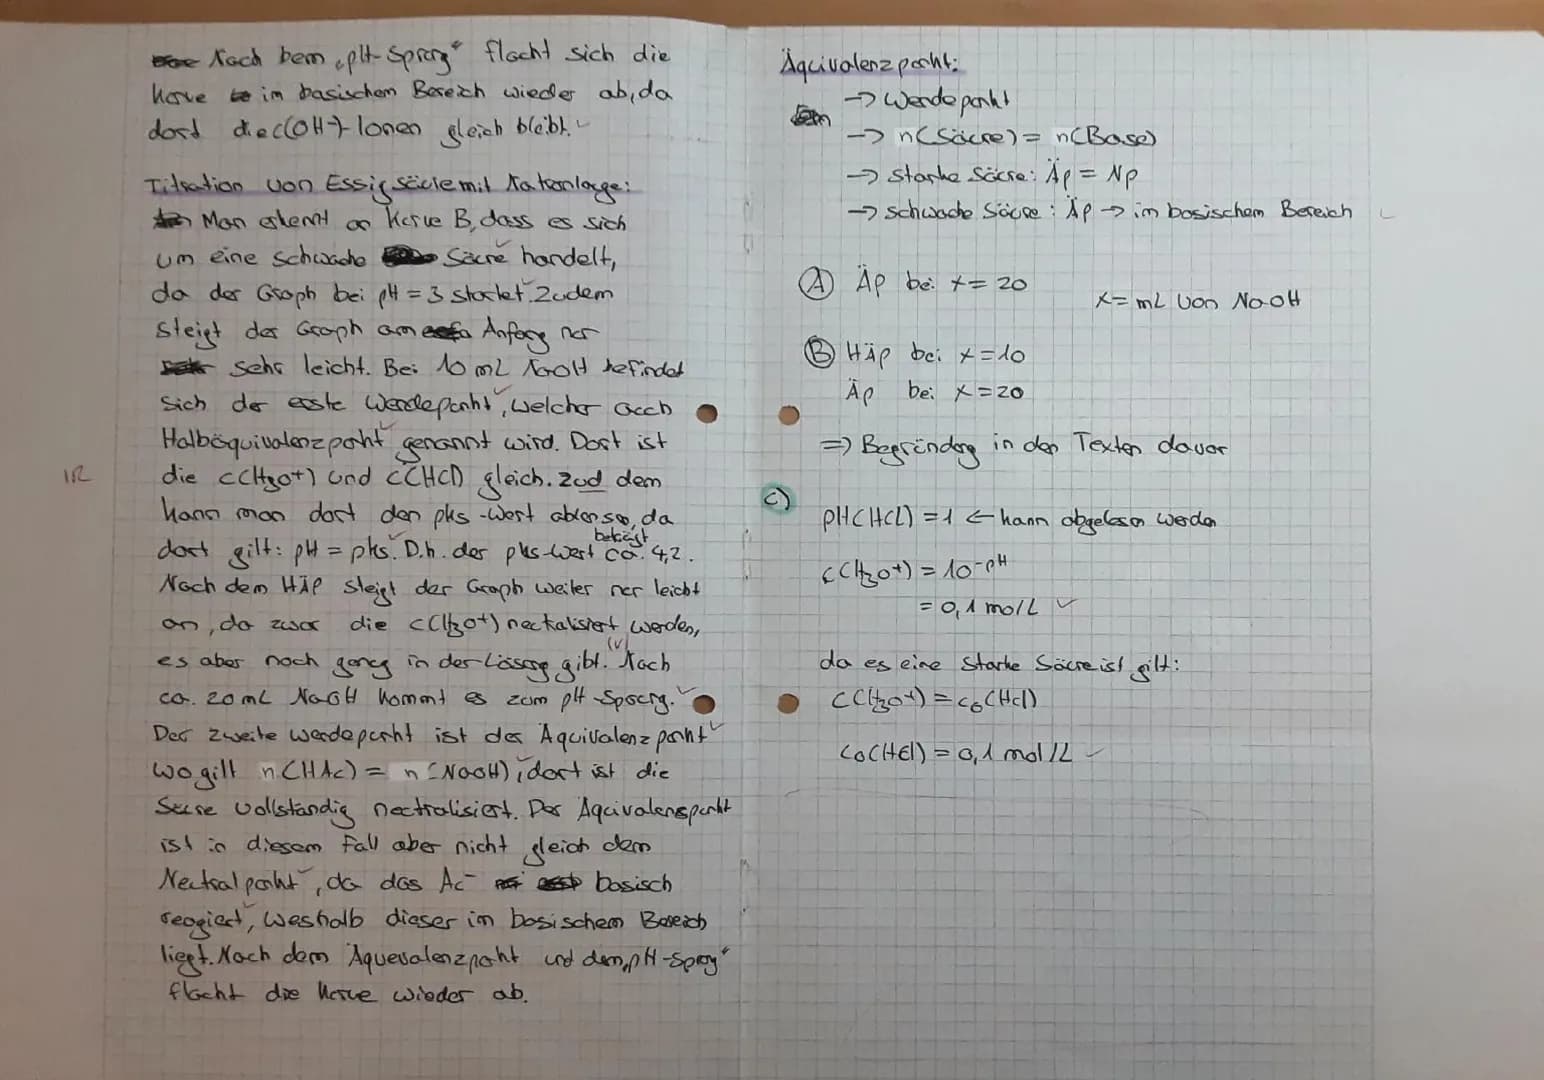 Nach dem „pH-Sprung“ flacht sich die
Kurve im basischen Bereich wieder ab, da
dort die c(OH⁻)-Ionen gleich bleibt.
Titration von Essigsäure mit Natronlauge:
Man erkennt an Kurve B, dass es sich
um eine schwache Säure handelt,
da der Graph bei pH = 3 startet. Zudem
steigt der Graph am Anfang nur
sehr leicht. Bei 10 mL NaOH befindet
sich der erste Wendepunkt, welcher auch
Halbäquivalenzpunkt genannt wird. Dort ist
die c(H₃O⁺) und c(HCl) gleich. Zud dem
1R
kann man dort den pks-Wert ablesen, da
dort gilt: pH = pks. D.h. der pks-Wert beträgt ca. 4,2.
Nach dem HÄP steigt der Graph weiter nur leicht
an, da zwar die c(H₃O⁺) neutralisiert werden,
es aber noch genug in der Lösung gibt. (v) Nach
ca. 20 mL NaOH kommt es zum pH-Sprung.
Der zweite Wendepunkt ist der Äquivalenzpunkt
wo gilt n(HAc) = n(NaOH), dort ist die
Säure vollständig neutralisiert. Der Äquivalenspunkt
ist in diesem Fall aber nicht gleich dem
Neutralpunkt, da das Ac⁻ basisch
reagiert, weshalb dieser im basischem Bereich
liegt. Nach dem Äquevalenzpunkt und dem „pH-Sprung“
flacht die Kurve wieder ab.
Äquivalenzpunkt:
→ Wendepunkt
→ n(Säure) = n(Base)
→ starke Säure: Äp = Np
→ schwache Säure: Äp → im basischem Bereich
(A) Äp bei x = 20
x = mL von NaOH
(B) HÄp bei x = 10
Äp bei x = 20
⇒ Begründung in den Texten davor
c)
pH(HCl) = 1 ← kann abgelesen werden
c(H₃O⁺) = 10⁻ᵖᴴ
= 0,1 mol/L
da es eine starke Säure ist gilt:
c(H₃O⁺) = c₀(HCl)
c₀(HCl) = 0,1 mol/L